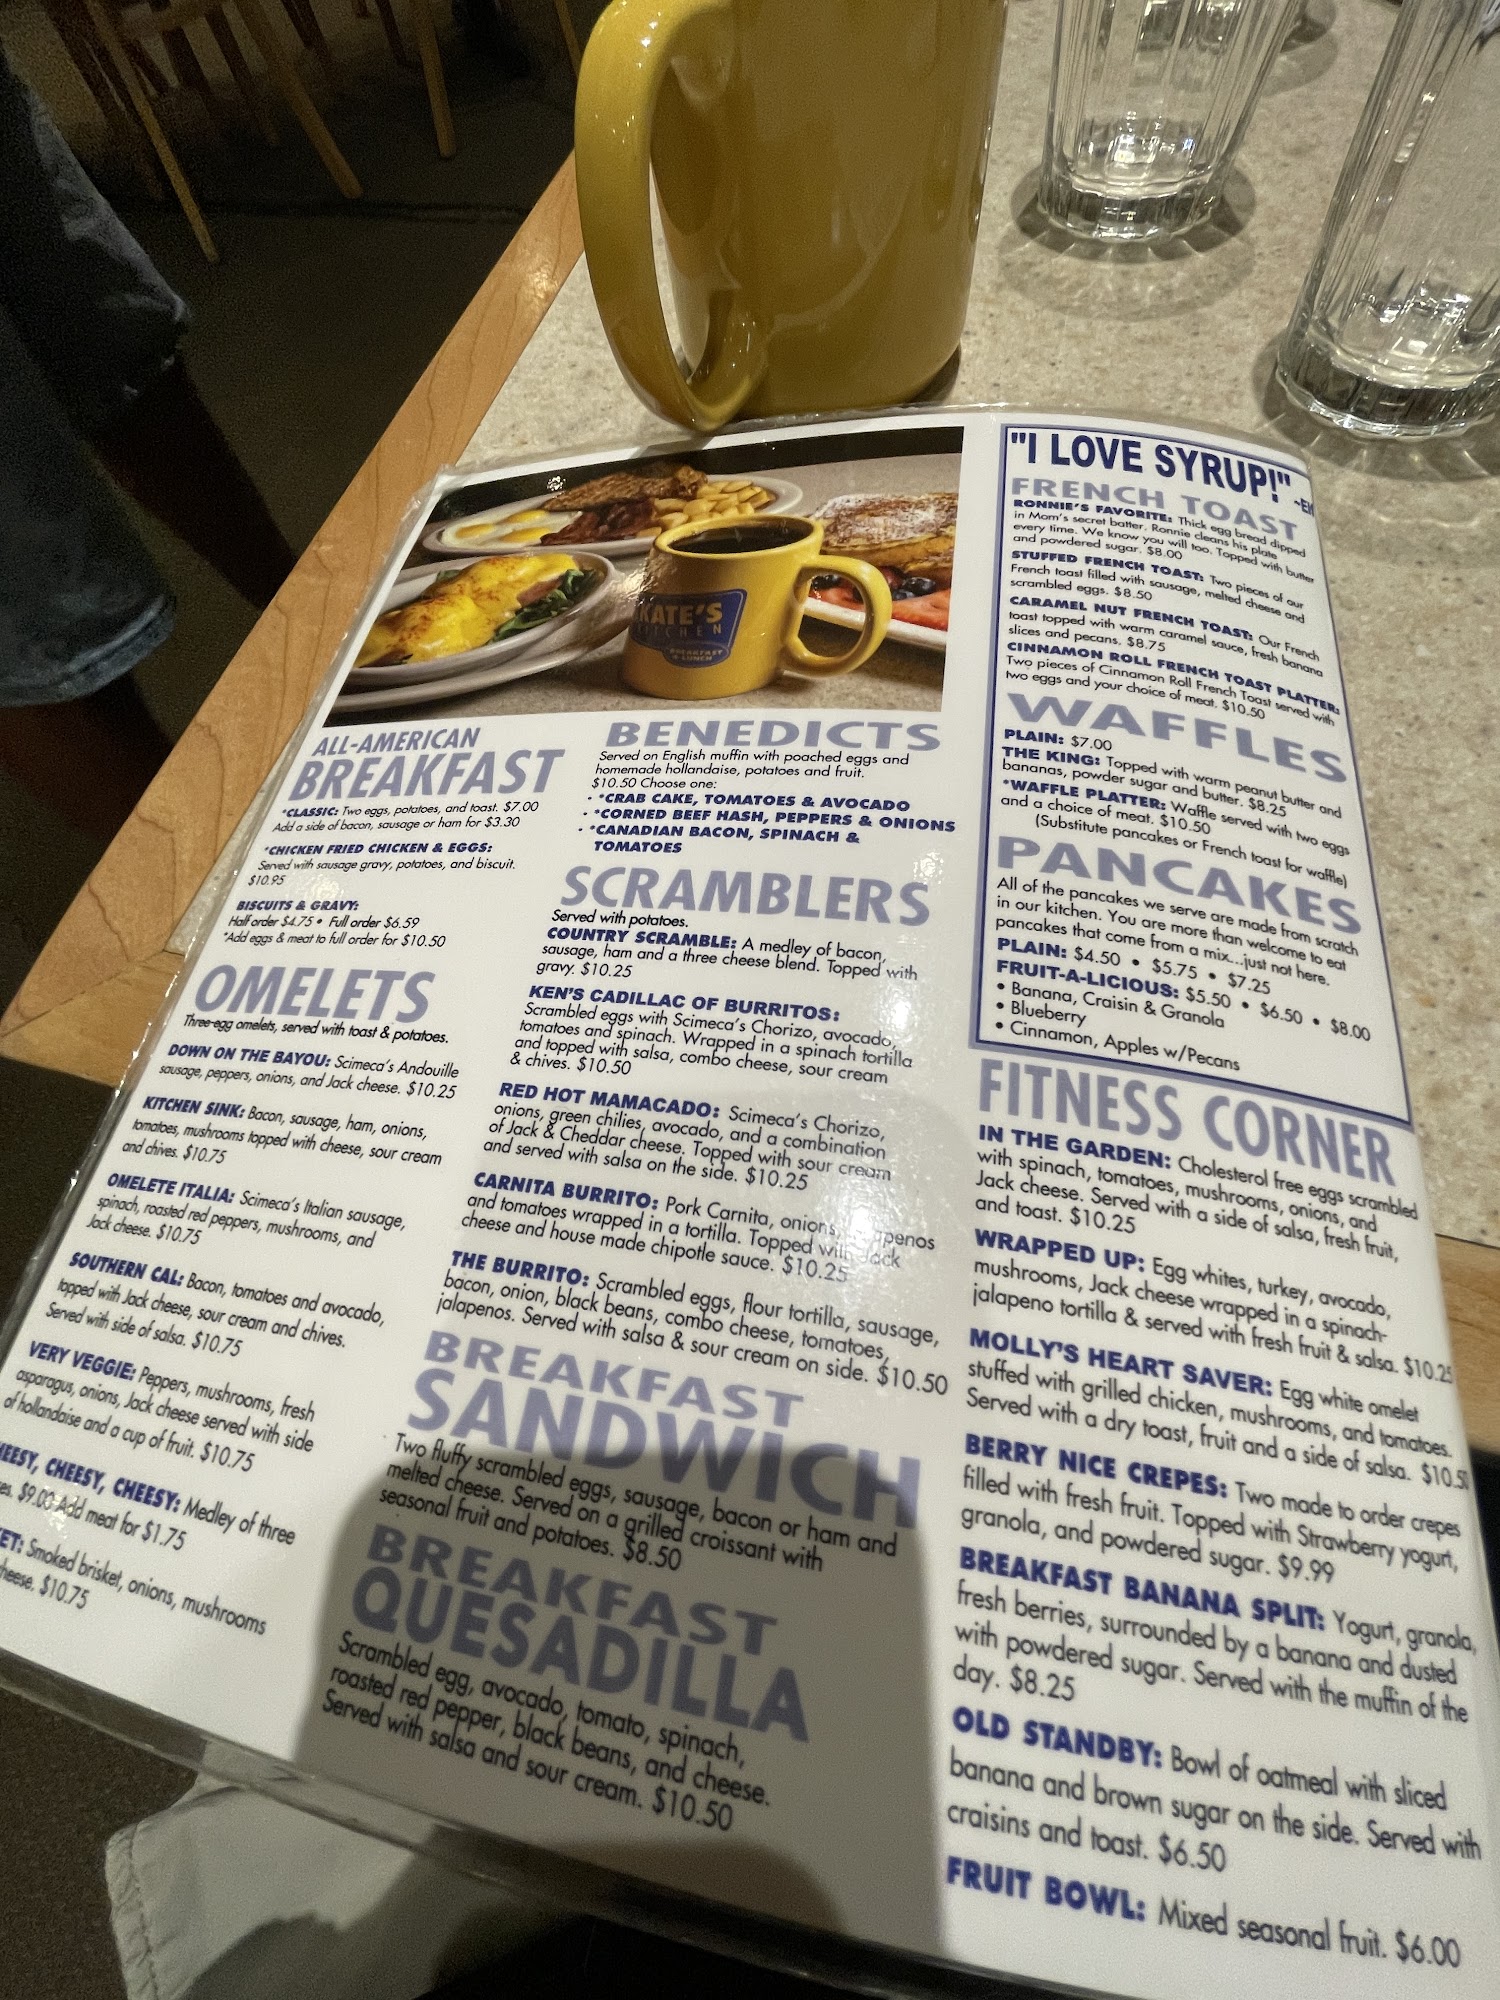 KATE'S
KITCHEN
BREAKFAST
& LUNCH
ALL-AMERICAN
BREAKFAST
*CLASSIC: Two eggs, potatoes, and toast. $7.00
Add a side of bacon, sausage or ham for $3.30
*CHICKEN FRIED CHICKEN & EGGS:
Served with sausage gravy, potatoes, and biscuit.
$10.95
BISCUITS & GRAVY:
Half order $4.75 • Full order $6.59
*Add eggs & meat to full order for $10.50
OMELETS
Three-egg omelets, served with toast & potatoes.
DOWN ON THE BAYOU: Scimeca's Andouille
sausage, peppers, onions, and Jack cheese. $10.25
KITCHEN SINK: Bacon, sausage, ham, onions,
tomatoes, mushrooms topped with cheese, sour cream
and chives. $10.75
OMELETE ITALIA: Scimeca's Italian sausage,
spinach, roasted red peppers, mushrooms, and
Jack cheese. $10.75
SOUTHERN CAL: Bacon, tomatoes and avocado,
topped with Jack cheese, sour cream and chives.
Served with side of salsa. $10.75
VERY VEGGIE: Peppers, mushrooms, fresh
asparagus, onions, Jack cheese served with side
of hollandaise and a cup of fruit. $10.75
CHEESY, CHEESY, CHEESY: Medley of three
$9.00 Add meat for $1.75
Smoked brisket, onions, mushrooms
cheese. $10.75
BENEDICTS
Served on English muffin with poached eggs and
homemade hollandaise, potatoes and fruit.
$10.50 Choose one:
• *CRAB CAKE, TOMATOES & AVOCADO
• *CORNED BEEF HASH, PEPPERS & ONIONS
• *CANADIAN BACON, SPINACH &
TOMATOES
SCRAMBLERS
Served with potatoes.
COUNTRY SCRAMBLE: A medley of bacon,
sausage, ham and a three cheese blend. Topped with
gravy. $10.25
KEN'S CADILLAC OF BURRITOS:
Scrambled eggs with Scimeca's Chorizo, avocado,
tomatoes and spinach. Wrapped in a spinach tortilla
and topped with salsa, combo cheese, sour cream
& chives. $10.50
RED HOT MAMACADO: Scimeca's Chorizo,
onions, green chilies, avocado, and a combination
of Jack & Cheddar cheese. Topped with sour cream
and served with salsa on the side. $10.25
CARNITA BURRITO: Pork Carnita, onions, jalapenos
and tomatoes wrapped in a tortilla. Topped with Jack
cheese and house made chipotle sauce. $10.25
THE BURRITO: Scrambled eggs, flour tortilla, sausage,
bacon, onion, black beans, combo cheese, tomatoes,
jalapenos. Served with salsa & sour cream on side. $10.50
BREAKFAST
SANDWICH
Two fluffy scrambled eggs, sausage, bacon or ham and
melted cheese. Served on a grilled croissant with
seasonal fruit and potatoes. $8.50
BREAKFAST
QUESADILLA
Scrambled egg, avocado, tomato, spinach,
roasted red pepper, black beans, and cheese.
Served with salsa and sour cream. $10.50
"I LOVE SYRUP!"
FRENCH TOAST
RONNIE'S FAVORITE: Thick egg bread dipped
in Mom's secret batter. Ronnie cleans his plate
every time. We know you will too. Topped with butter
and powdered sugar. $8.00
STUFFED FRENCH TOAST: Two pieces of our
French toast filled with sausage, melted cheese and
scrambled eggs. $8.50
CARAMEL NUT FRENCH TOAST: Our French
toast topped with warm caramel sauce, fresh banana
slices and pecans. $8.75
CINNAMON ROLL FRENCH TOAST PLATTER:
Two pieces of Cinnamon Roll French Toast served with
two eggs and your choice of meat. $10.50
WAFFLES
PLAIN: $7.00
THE KING: Topped with warm peanut butter and
bananas, powder sugar and butter. $8.25
*WAFFLE PLATTER: Waffle served with two eggs
and a choice of meat. $10.50
(Substitute pancakes or French toast for waffle)
PANCAKES
All of the pancakes we serve are made from scratch
in our kitchen. You are more than welcome to eat
pancakes that come from a mix...just not here.
PLAIN: $4.50 • $5.75 • $7.25
FRUIT-A-LICIOUS: $5.50 • $6.50 • $8.00
• Banana, Craisin & Granola
• Blueberry
• Cinnamon, Apples w/Pecans
FITNESS CORNER
IN THE GARDEN: Cholesterol free eggs scrambled
with spinach, tomatoes, mushrooms, onions, and
Jack cheese. Served with a side of salsa, fresh fruit,
and toast. $10.25
WRAPPED UP: Egg whites, turkey, avocado,
mushrooms, Jack cheese wrapped in a spinach-
jalapeno tortilla & served with fresh fruit & salsa. $10.25
MOLLY'S HEART SAVER: Egg white omelet
stuffed with grilled chicken, mushrooms, and tomatoes.
Served with a dry toast, fruit and a side of salsa. $10.50
BERRY NICE CREPES: Two made to order crepes
filled with fresh fruit. Topped with Strawberry yogurt,
granola, and powdered sugar. $9.99
BREAKFAST BANANA SPLIT: Yogurt, granola,
fresh berries, surrounded by a banana and dusted
with powdered sugar. Served with the muffin of the
day. $8.25
OLD STANDBY: Bowl of oatmeal with sliced
banana and brown sugar on the side. Served with
craisins and toast. $6.50
FRUIT BOWL: Mixed seasonal fruit. $6.00